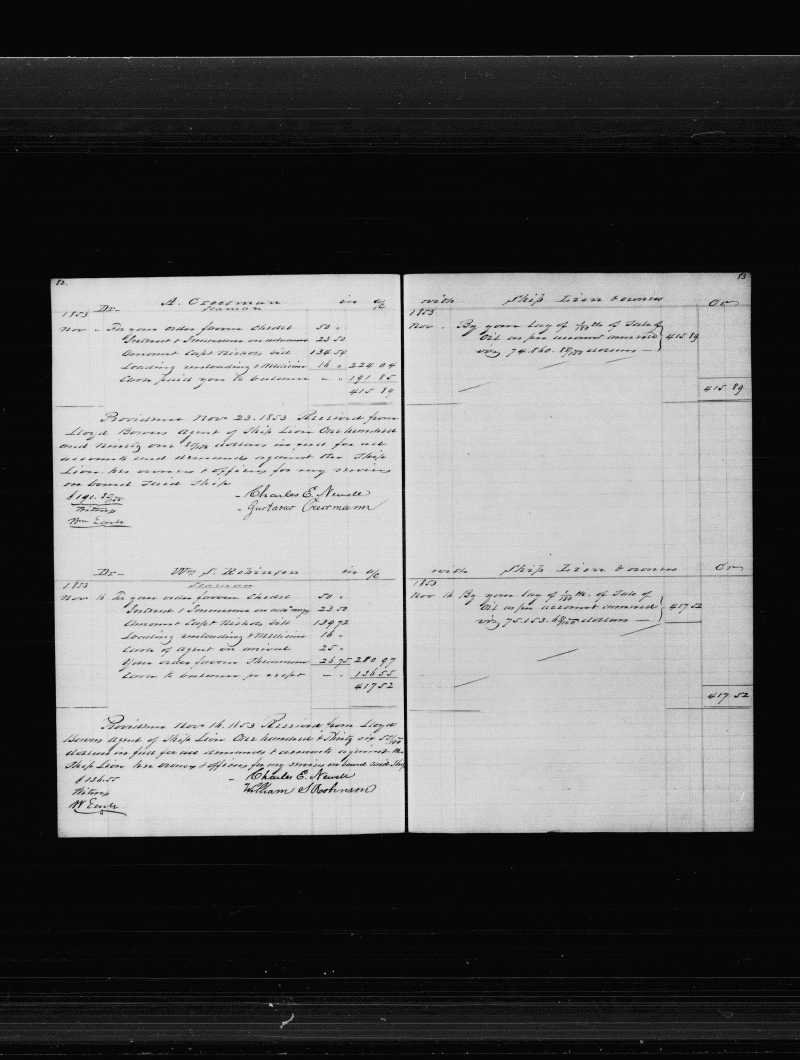 82.
Dr A. Cressman in a/c
Seaman
1853
Nov To your order favour Chedel 50 "
Interest & Insurance on advance 23 50
Amount Capt Nichols bill 134 54
Loading unloading & Medicine 16 " 224 04
Cash paid you to balance " " 191 85
415 89
Providence Nov 23. 1853 Received from
Lloyd Bowers agent of Ship Lion One hundred
and ninety one 85/100 dollars in full for all
accounts and demands against the Ship
Lion, her owners & officers for my services
on board Said Ship
$191.85/100 Charles E. Newell
Witness Gustavus Cressmann
Wm Earle
Dr Wm S. Robinson in a/c
Seaman
1853
Nov 16 To your order favour Chedel 50 "
Interest & Insurance on 23 50
Amount Capt Nichols bill 139 72
Loading unloading & Medicine 16 "
Cash of Agent on arrival 25 "
Your order favour 26 75 280 97
Cash to balance pr recpt " 136 55
417 52
Providence Nov 16. 1853 Received from Lloyd
Bowers agent of Ship Lion One hundred & Thirty six 55/100
dollars in full for all demands & accounts against the
Ship Lion her owners & officers for my services on board said Ship
$136 55 Charles E. Newell
Witness William S Robinson
W Earle
83
with Ship Lion & owners Cr
1853
Nov By your lay of of Sale of
Oil as per account annexed 415.89
viz 74.860. 88/100 dollars
415.89
with Ship Lion & owners Cr
1853
Nov 16 By your lay of of Sale of
Oil as per account annexed 417 52
viz 75.153. dollars
417.52